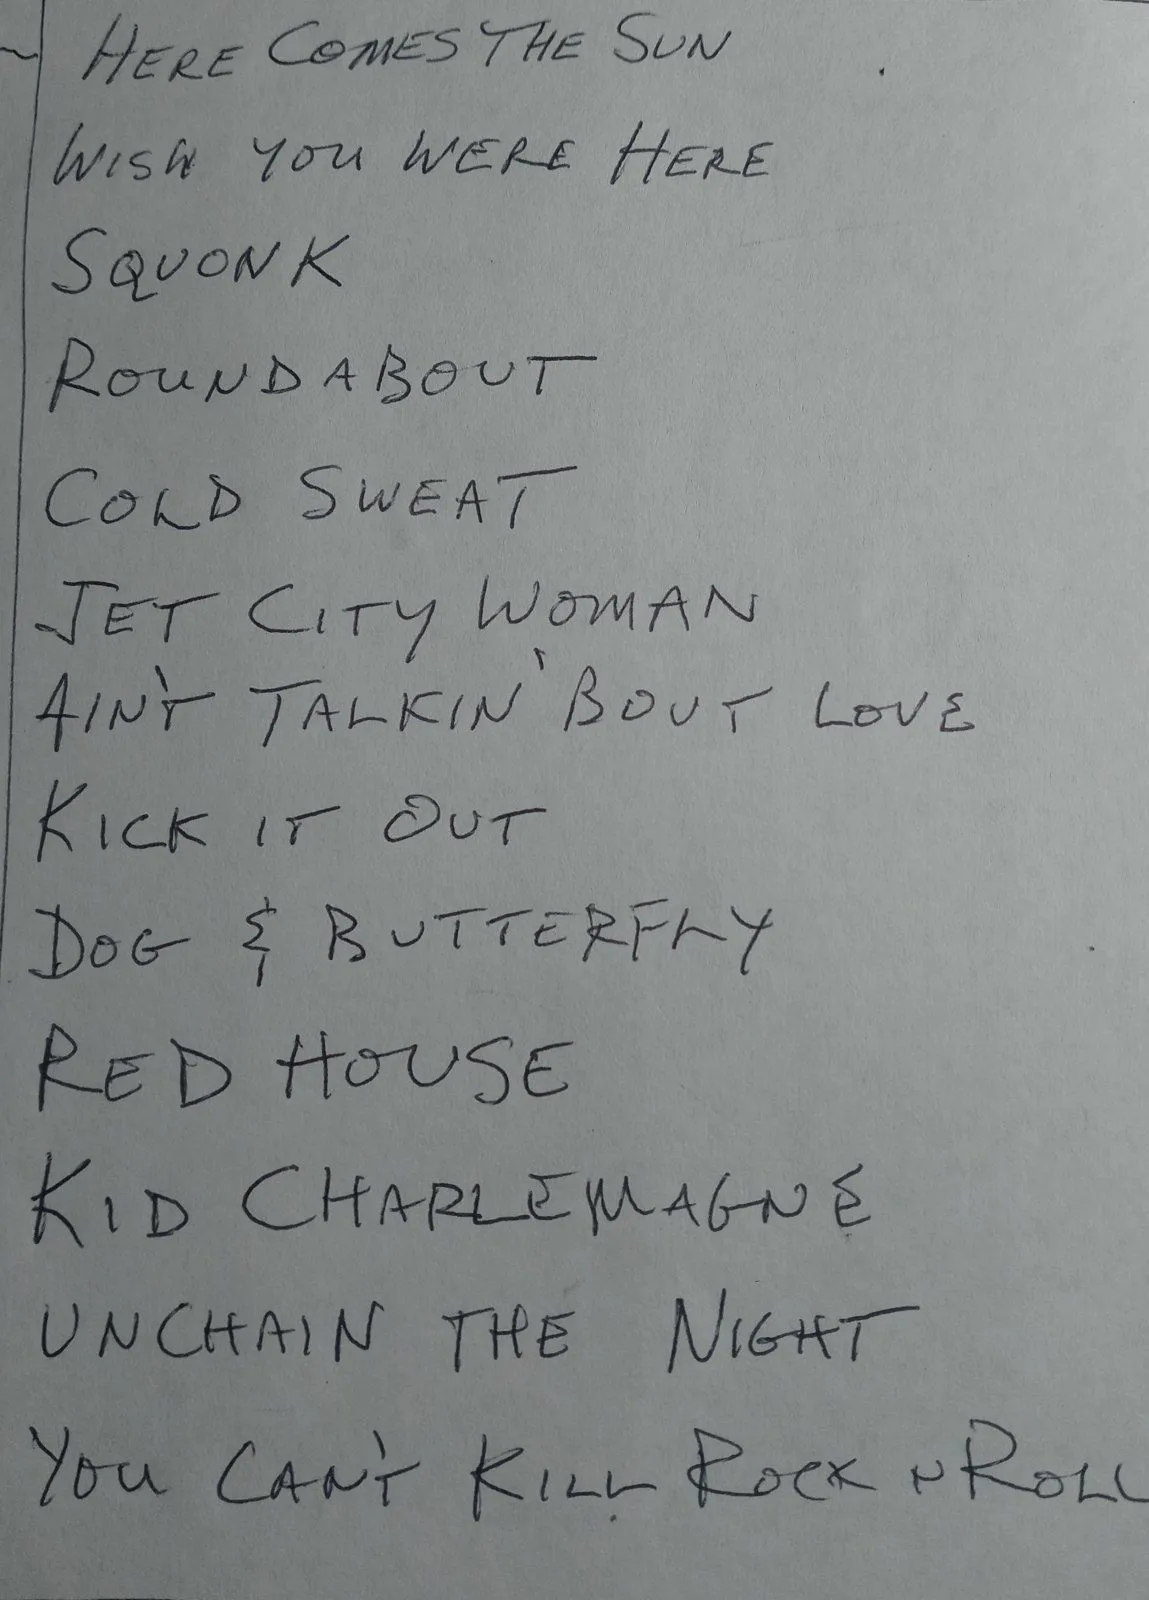 HERE COMES THE SUN
WISH YOU WERE HERE
SQUONK
ROUNDABOUT
COLD SWEAT
JET CITY WOMAN
AIN'T TALKIN' 'BOUT LOVE
KICK IT OUT
DOG & BUTTERFLY
RED HOUSE
KID CHARLEMAGNE
UNCHAIN THE NIGHT
YOU CAN'T KILL ROCK N ROLL